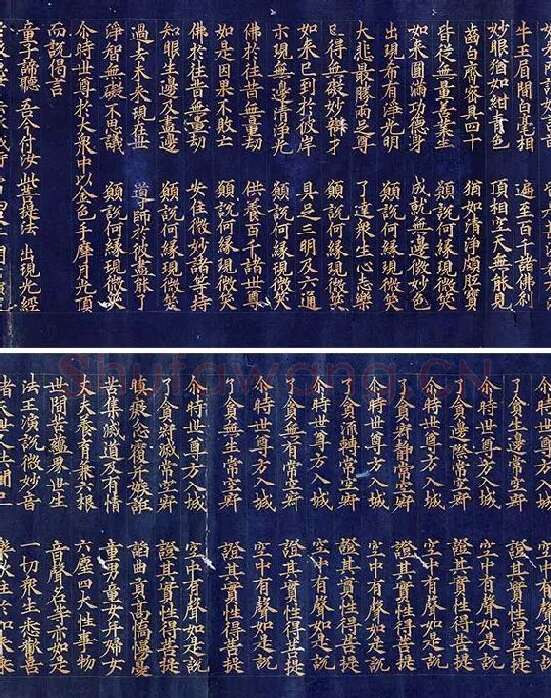 牛王眉間白毫相 遍至百千諸佛剎
妙眼猶如紺青色 頂相空天無能見
齒白齊密具四十 猶如清淨頗胝寶
昔從無量善業生 願說何緣現微笑
如來圓滿功德身 成就無邊微妙色
出現希有淨光明 願說何緣現微笑
大悲最勝兩足尊 了達眾生心志樂
已得無礙妙辯才 願說何緣現微笑
如來已到於彼岸 具足三明及六通
示現無邊清淨光 願說何緣現微笑
佛於往昔無量劫 供養百千諸世尊
如是因果不敗亡 願說何緣現微笑
佛於往昔無量劫 安住微妙諸等持
知眼無邊及盡邊 願說何緣現微笑
過去未來現在世 導師於彼盡能了
淨智無礙不思議 願說何緣現微笑
尒時世尊於大眾中以金色手摩月光頂
而說偈言
童子諦聽 吾今付汝 此菩提法 出現光經
了貪無生邊常空寂 證其實性得菩提
尒時世尊方入城 空中有聲如是說
了貪邊際常空寂 證其實性得菩提
尒時世尊方入城 空中有聲如是說
了貪靜常空寂 證其實性得菩提
尒時世尊方入城 空中有聲如是說
了貪常空寂 證其實性得菩提
尒時世尊方入城 空中有聲如是說
了貪無有常空寂 證其實性得菩提
尒時世尊方入城 空中有聲如是說
了貪無生常空寂 證其實性得菩提
尒時世尊方入城 空中有聲如是說
了貪寂滅常空寂 證其實性得菩提
瞋癡忿覆并嫉誑 諂曲貢高憍慢
苦集滅道及有情 童男童女并婦女
丈夫養育兼六根 六塵四大性事物
世間苦蘊界世生 音聲名等亦如是
法王演說微妙音 一切眾生悉歡喜
Shufawang.CN